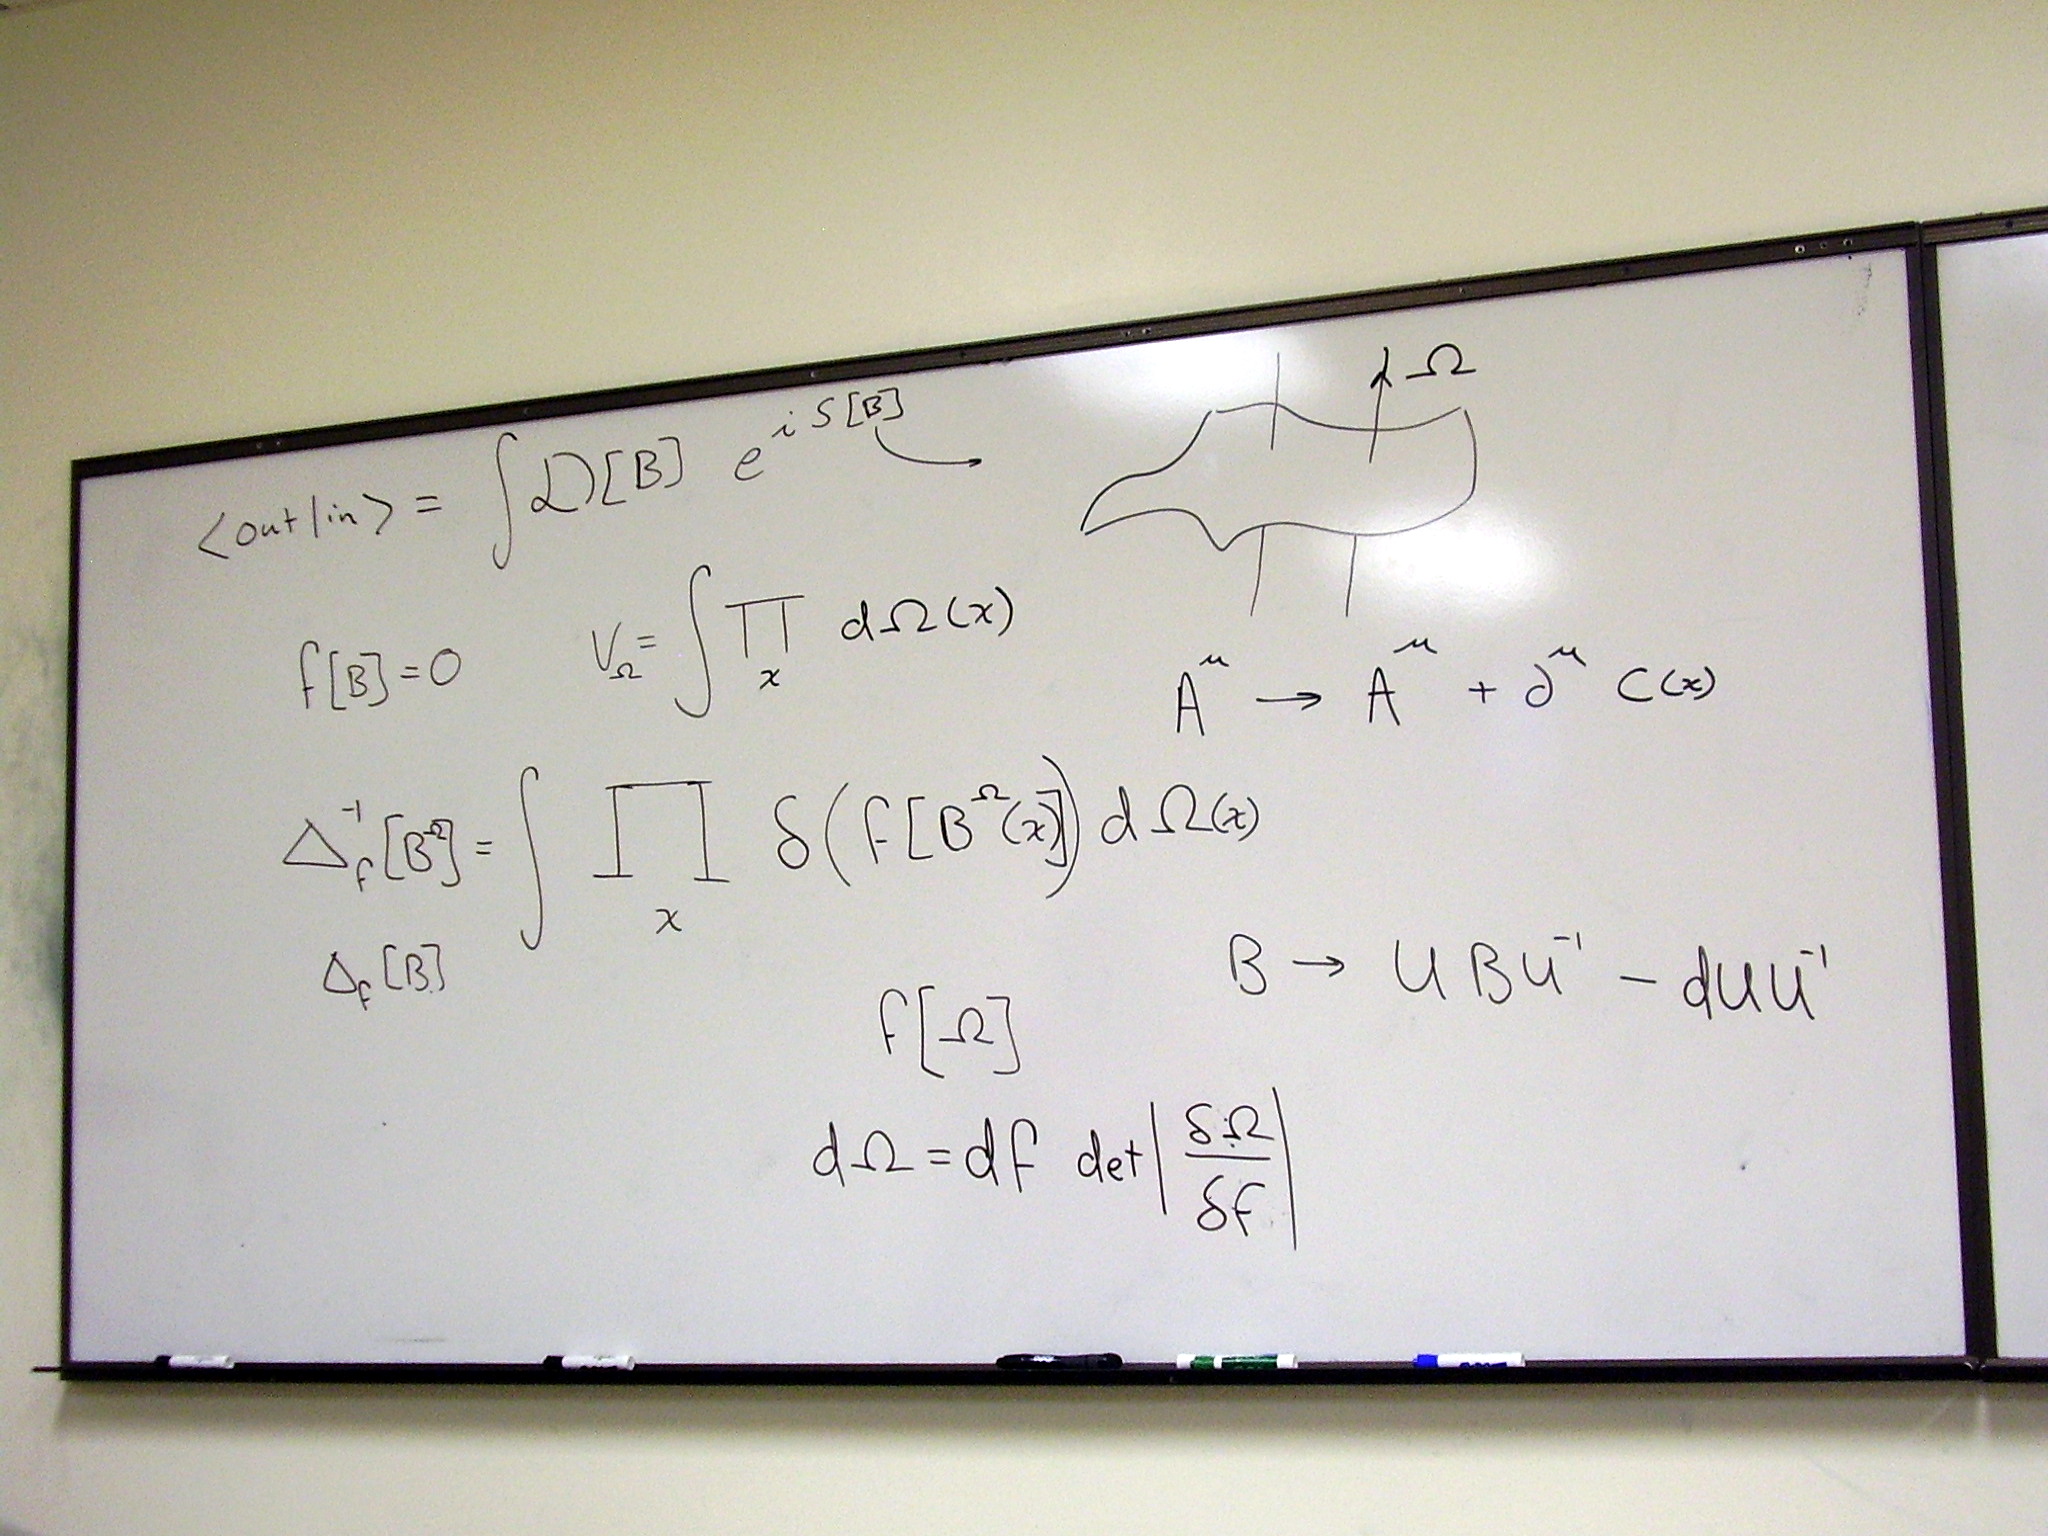 <out|in> = ∫ D[B] e^{i S[B]}
Ω
f[B] = 0
V_Ω = ∫ ∏_x dΩ(x)
A^μ → A^μ + ∂^μ C(x)
Δ_f^{-1}[B^Ω] = ∫ ∏_x δ(f[B^Ω(x)]) dΩ(x)
Δ_f[B]
B → U B U^{-1} − dU U^{-1}
f[Ω]
dΩ = df det|δΩ/δf|